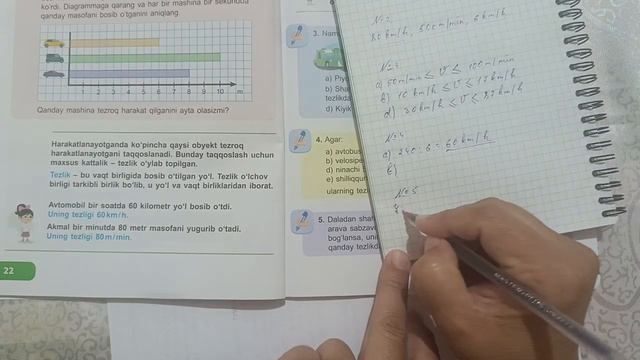 ko'rdi. Diagrammaga qarang va har bir mashina bir sekundda
qanday masofani bosib o'tganini aniqlang.
1 2 3 4 5 6 7 8 9 10 m
Qanday mashina tezroq harakat qilganini ayta olasizmi?
Harakatlanayotganda ko'pincha qaysi obyekt tezroq
harakatlanayotgani taqqoslanadi. Bunday taqqoslash uchun
maxsus kattalik – tezlik o'ylab topilgan.
Tezlik – bu vaqt birligida bosib o'tilgan yo'l. Tezlik o'lchov
birligi tarkibli birlik bo'lib, u yo'l va vaqt birliklaridan iborat.
Avtomobil bir soatda 60 kilometr yo'l bosib o'tdi.
Uning tezligi 60 km/h.
Akmal bir minutda 80 metr masofani yugurib o'tdi.
Uning tezligi 80 m/min.
22
3. Nam
a) Piy
b) Sha
tezlikda
d) Kiyik
4. Agar:
a) avtobus
b) velosipe
d) ninachi
e) shilliqqur
ularning tezl
5. Daladan shah
arava sabzavo
bog'lansa, uni
qanday tezlikd
80 km/h, 50 m/min, 5 km/h
a) 50 m/min ≤ v ≤ 100 m/min
b) 10 km/h ≤ v ≤ 12 km/h
a) 240 : 6 = 60 km/h
№5